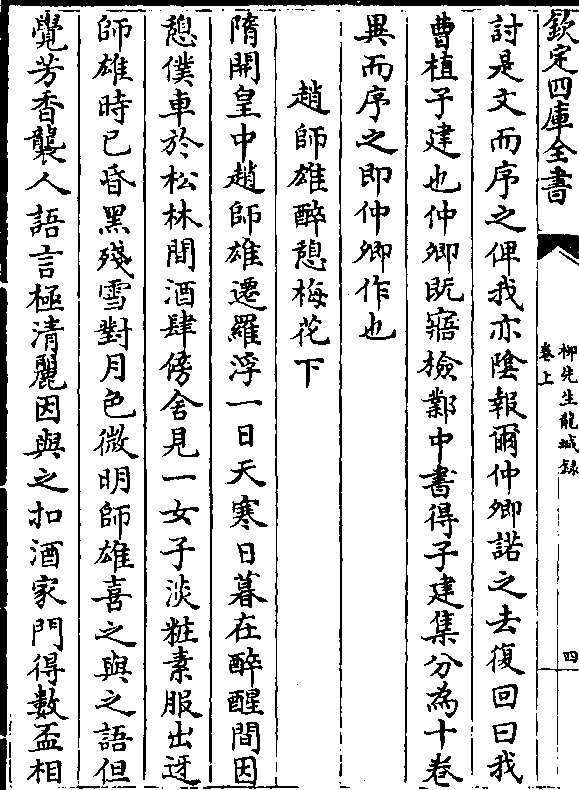 欽定四庫全書
柳先生龍城錄
卷上
四
討是文而序之俾我亦陰報爾仲卿諾之去復回曰我
曹植子建也仲卿既寤檢鄴中書得子建集分為十卷
異而序之即仲卿作也
趙師雄醉憩梅花下
隋開皇中趙師雄遷羅浮一日天寒日暮在醉醒間因
憩僕車於松林間酒肆傍舍見一女子淡粧素服出迓
師雄時已昏黑殘雪對月色微明師雄喜之與之語但
覺芳香襲人語言極清麗因與之扣酒家門得數盃相